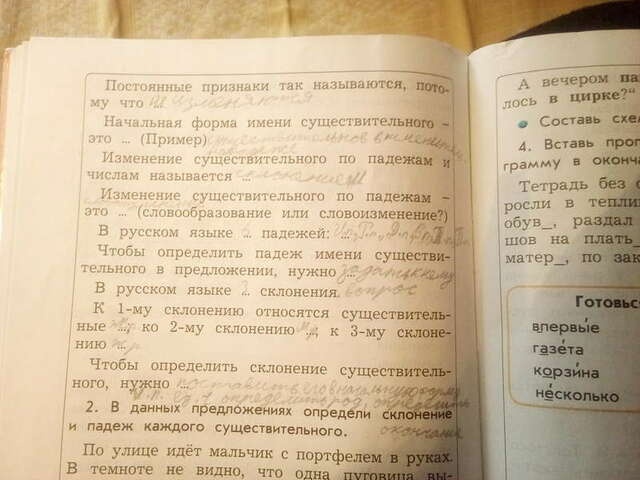 Постоянные признаки так называются, пото-
му что не изменяются
Начальная форма имени существительного –
это ... (Пример) существительное в именител.
падеже
Изменение существительного по падежам и
числам называется ... склонением
Изменение существительного по падежам –
это ... (словообразование или словоизменение?)
В русском языке 6 падежей: ... И.п., Р.п., Д.п., В.п., Т.п., П.п.
Чтобы определить падеж имени существи-
тельного в предложении, нужно задать к нему
В русском языке 3 склонения. вопрос
К 1-му склонению относятся существитель-
ные ..., ко 2-му склонению м.р, к 3-му склоне-
нию ж.р
Чтобы определить склонение существитель-
ного, нужно поставить его в начальную форму
И.п. ед.ч, определить род, определить
2. В данных предложениях определи склонение
и падеж каждого существительного. окончание
По улице идёт мальчик с портфелем в руках.
В темноте не видно, что одна пуговица вы-
А вечером
лось в цирке?"
Составь
4. Вставь
грамму в
Тетрадь без
росли в
обув_, раздал
шов на плать_
матер_, по
впервые
газета
корзина
несколько